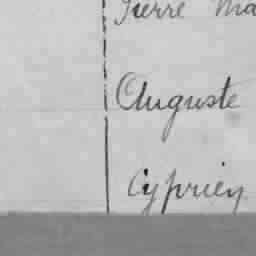 Pierre Ma
Auguste
Cyprien